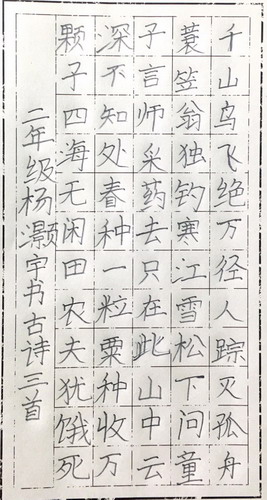 千山鸟飞绝万径人踪灭孤舟
蓑笠翁独钓寒江雪松下问童
子言师采药去只在此山中云
深不知处春种一粒粟种收万
颗子四海无闲田农夫犹饿死
二年级杨灏宇书古诗三首